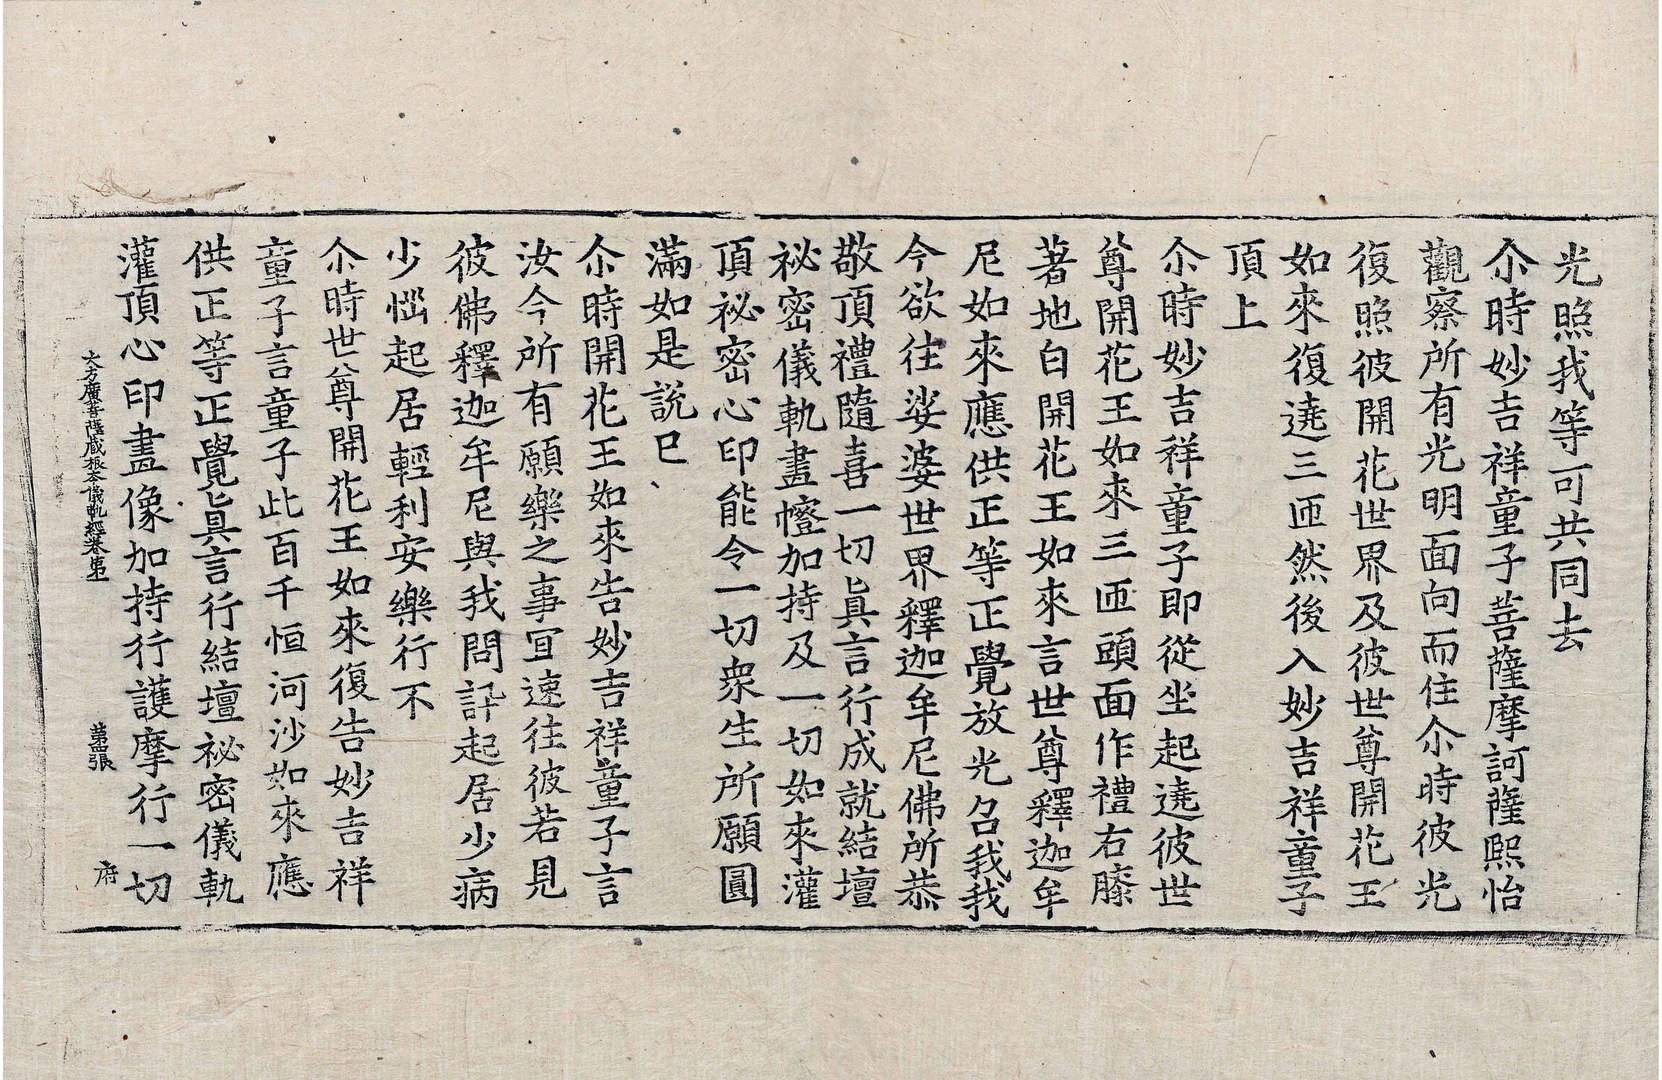 光照我等可共同去
尒時妙吉祥童子菩薩摩訶薩熙怡
觀察所有光明面向而住尒時彼光
復照彼開花世界及彼世尊開花王
如來復遶三匝然後入妙吉祥童子
頂上
尒時妙吉祥童子即從坐起遶彼世
尊開花王如來三匝頭面作禮右膝
著地白開花王如來言世尊釋迦牟
尼如來應供正等正覺放光召我我
今欲往娑婆世界釋迦牟尼佛所恭
敬頂禮隨喜一切眞言行成就結壇
祕密儀軌畫㡧加持及一切如來灌
頂祕密心印能令一切衆生所願圓
滿如是說已
尒時開花王如來告妙吉祥童子言
汝今所有願樂之事宜速往彼若見
彼佛釋迦牟尼與我問訊起居少病
少惱起居輕利安樂行不
尒時世尊開花王如來復告妙吉祥
童子言童子此百千恒河沙如來應
供正等正覺眞言行結壇祕密儀軌
灌頂心印畫像加持行護摩行一切
大方廣菩薩藏根本儀軌經卷第 張 府